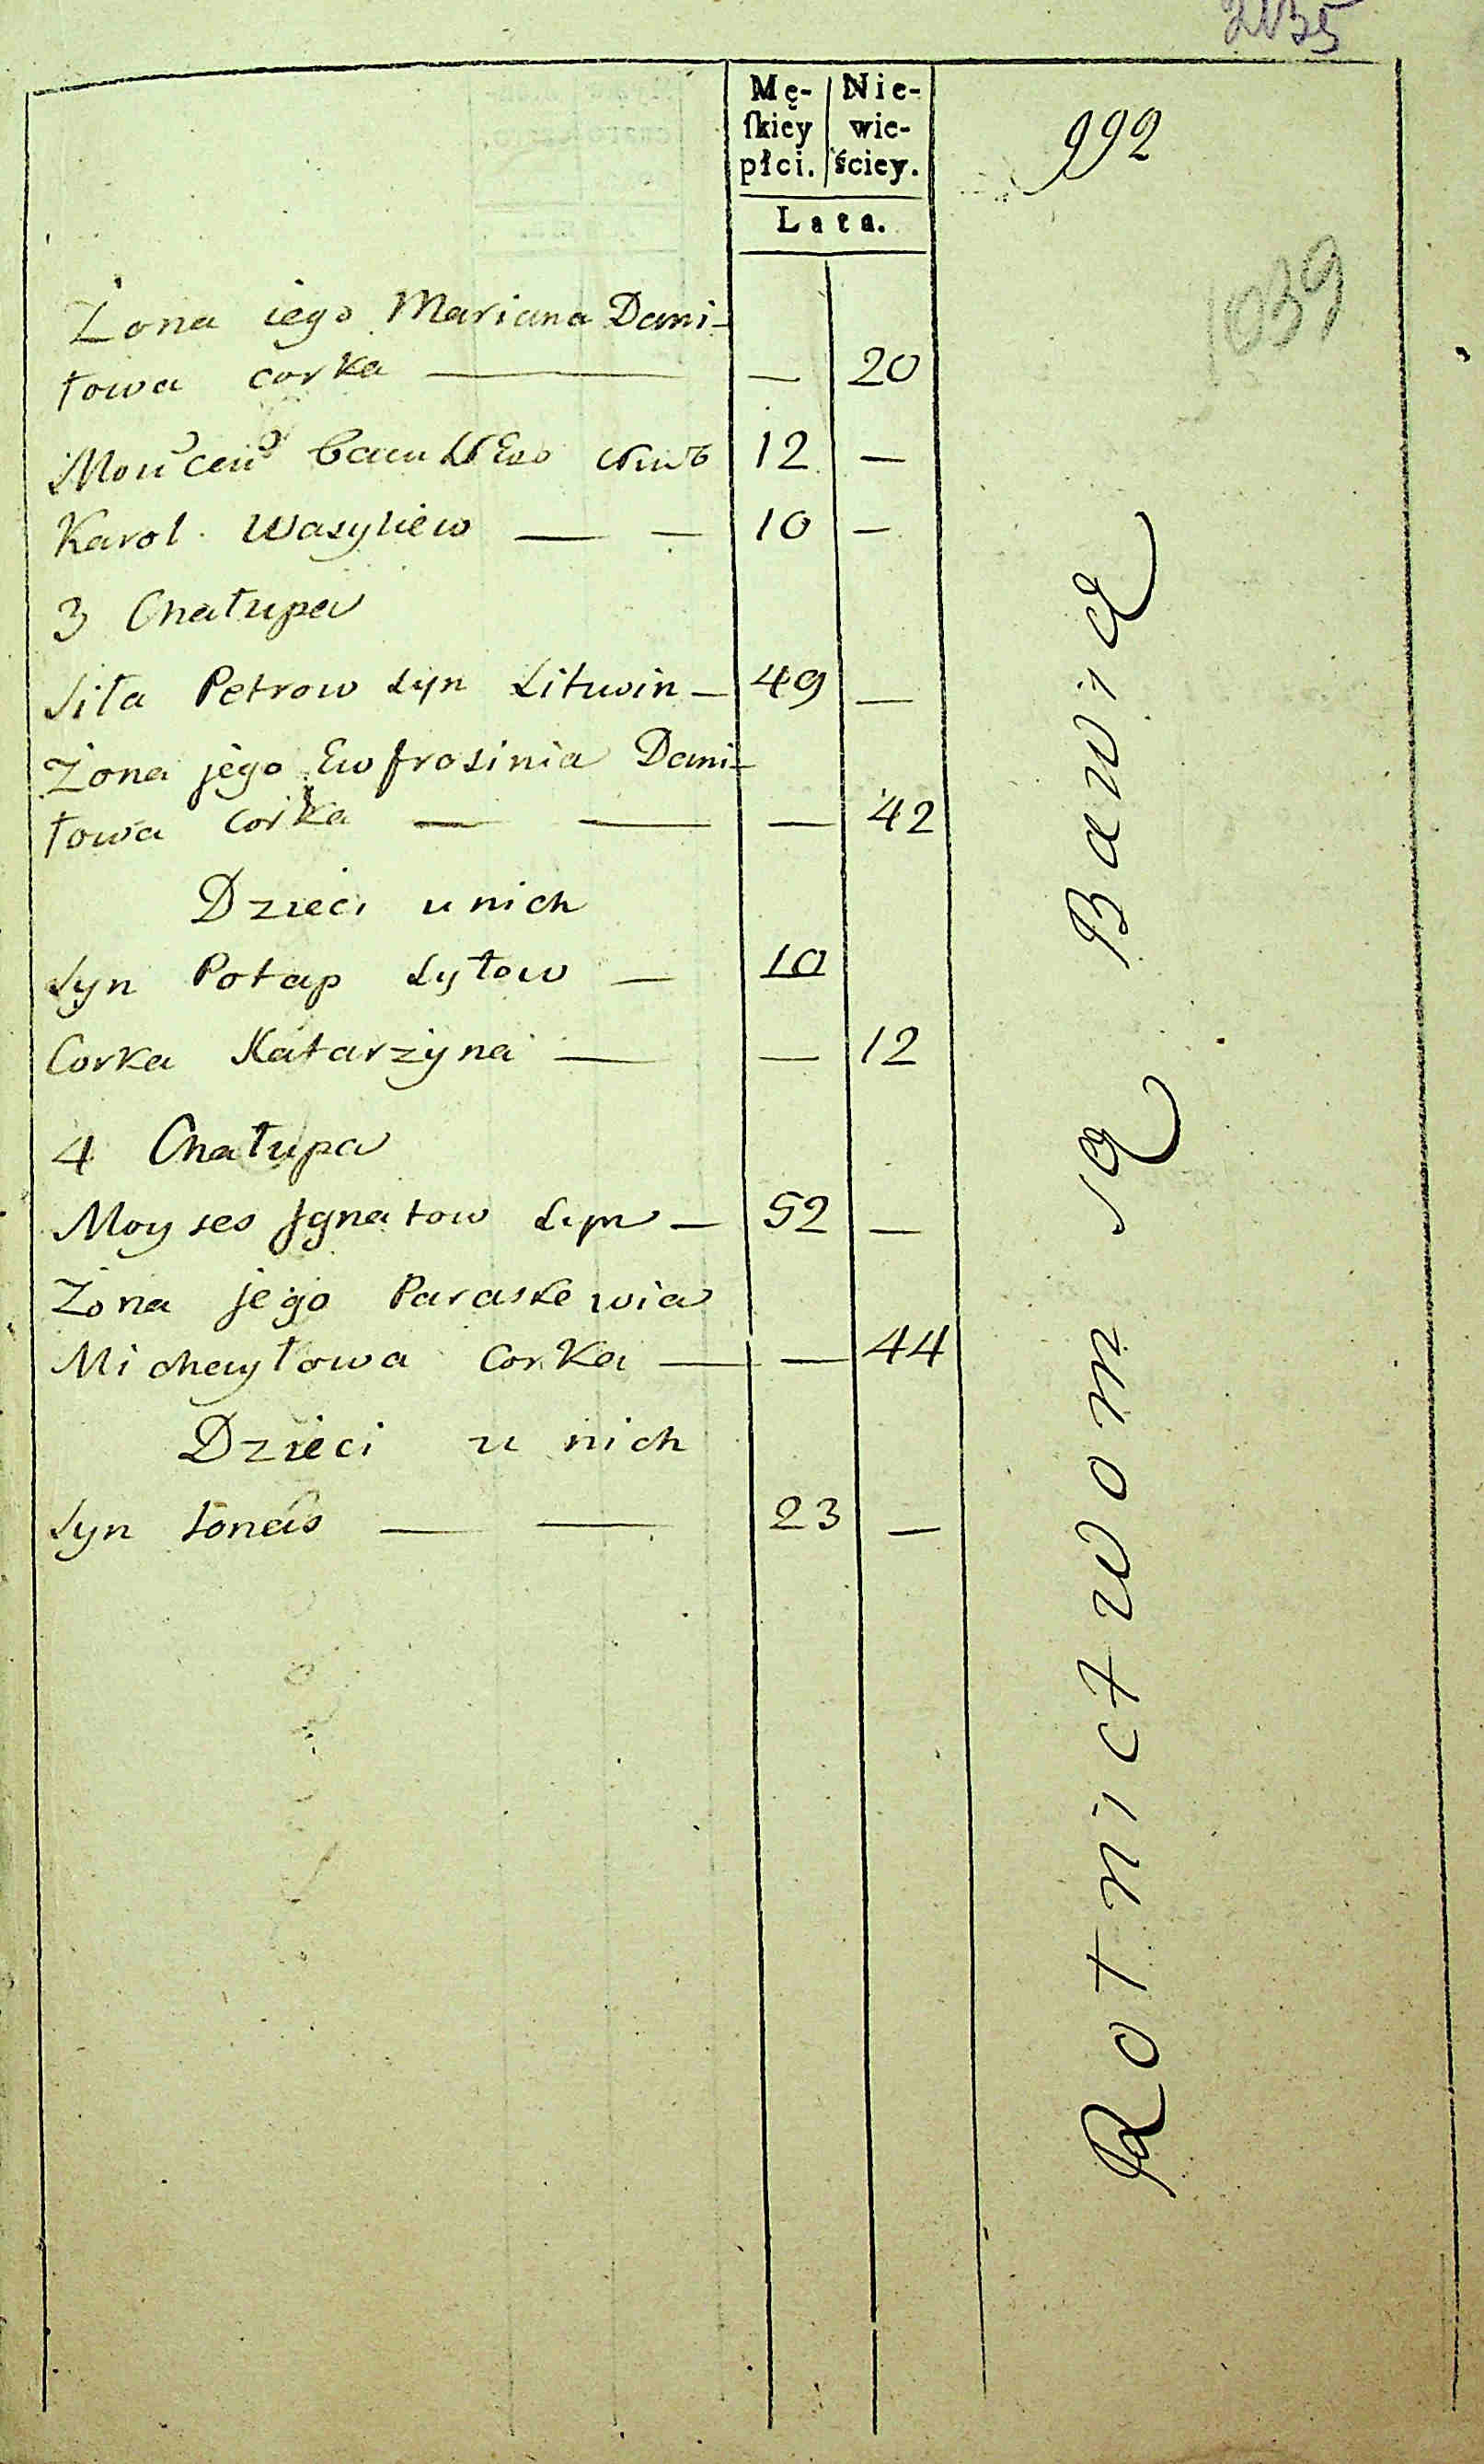 992
1039
Mę-
ſkiey
płci.
Nie-
wie-
ściey.
Lata.
Żona iego Mariana Dani-
łowa corka — — 20
Моѵсей Василѣво сынъ 12 —
Karol Wasyliew — — 10 —
3 Chałupa
Siła Petrow syn Litwin — 49 —
Żona jego Ewfrosinia Dani-
łowa corka — — — 42
Dzieci u nich
Syn Potap Syłow — 10
Corka Katarzyna — — 12
4 Chałupa
Moyses Jgnatow syn — 52 —
Żona jego Paraskewia
Michayłowa corka — — 44
Dzieci u nich
Syn Jonas — — 23 —
Rotnictwom są Bawią